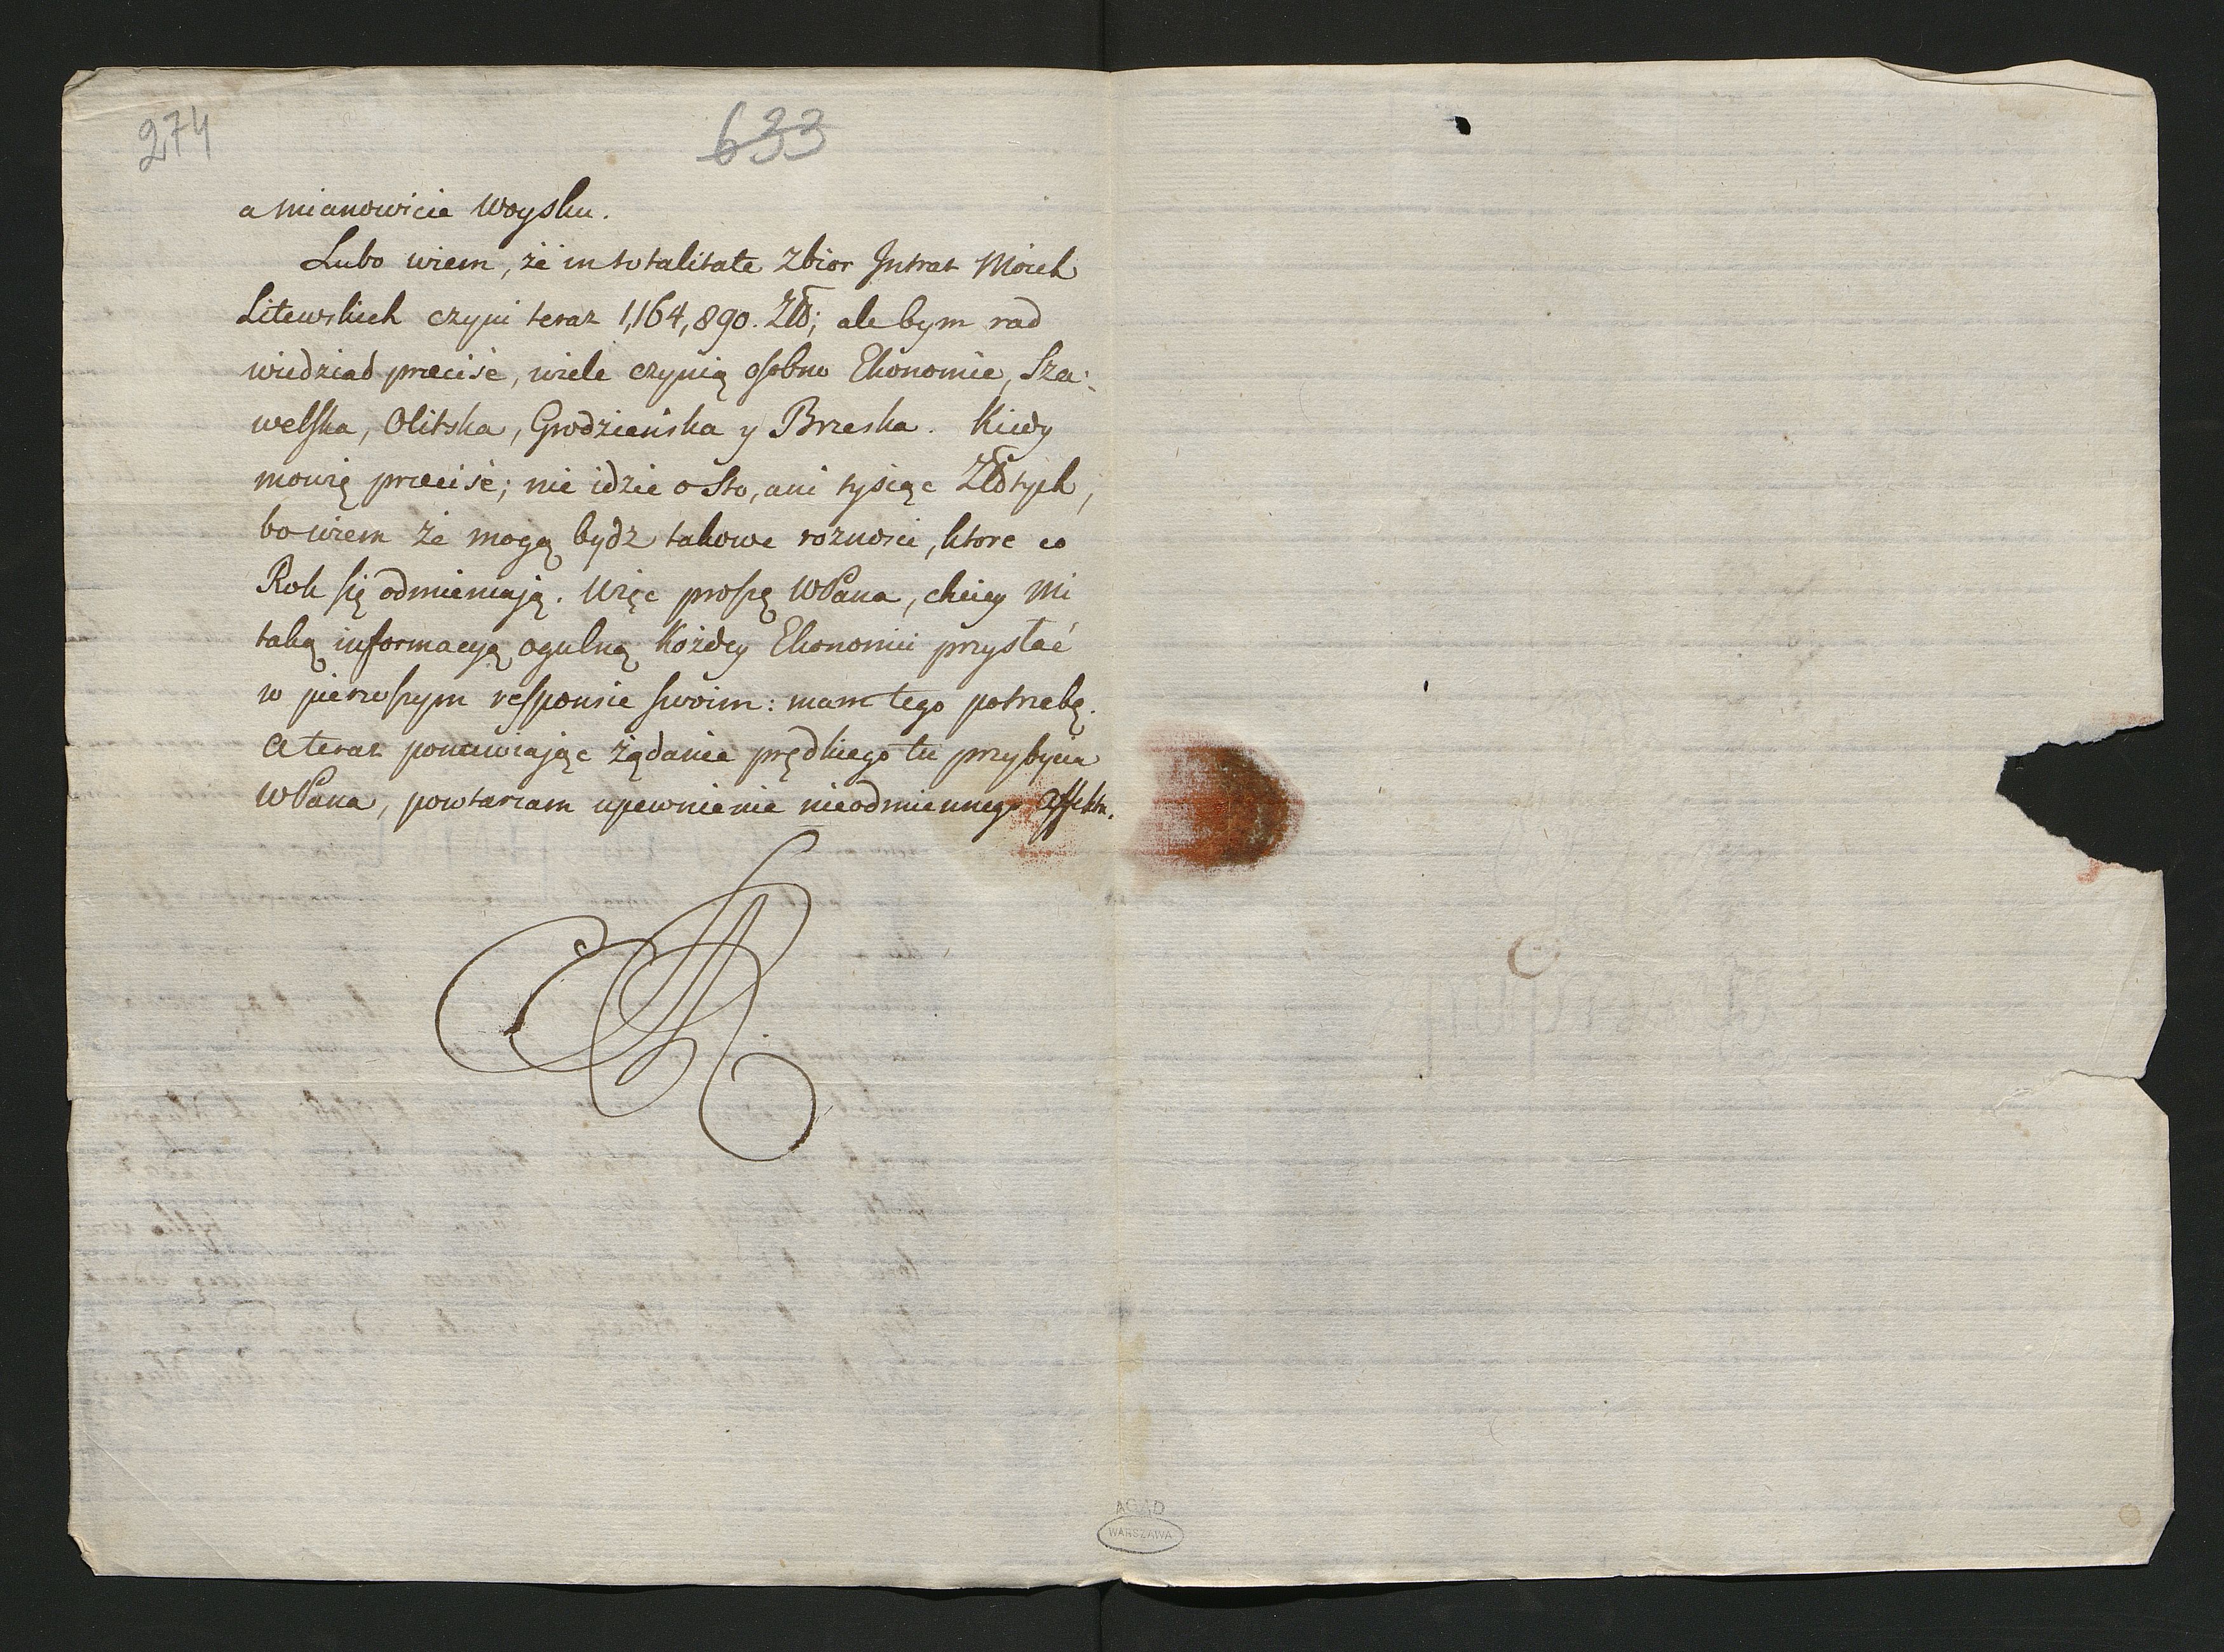 274
633
a mianowicie Woysku.
Lubo wiem, że in totalitate Zbior Intrat Moich
Litewskich czyni teraz 1,164,890. Złł; ale bym rad
wiedział præcisè, wiele czynią osobno Ekonomie, Sza-
welska, Olitska, Grodzieńska y Brzeska. Kiedy
mowię præcisè; nie idzie o Sto, ani tysiąc Złłtych,
bo wiem że mogą bydz takowe roznosci, ktore co
Rok się odmieniają. Więc proszę WPana, chciey Mi
taką informacyą ogulną Każdey Ekonomii przysłać
w pierwszym responsie swoim: mam tego potrzebę.
A teraz ponawiaiąc żądanie prędkiego tu przybycia
WPana, powtarzam upewnienie nieodmiennego affektu.
AGAD
WARSZAWA